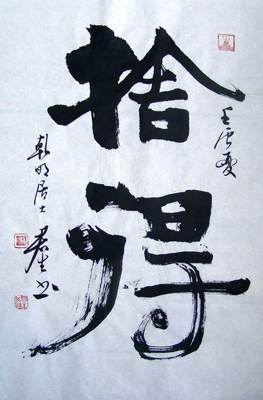 壬辰夏
捨得
明居士
书